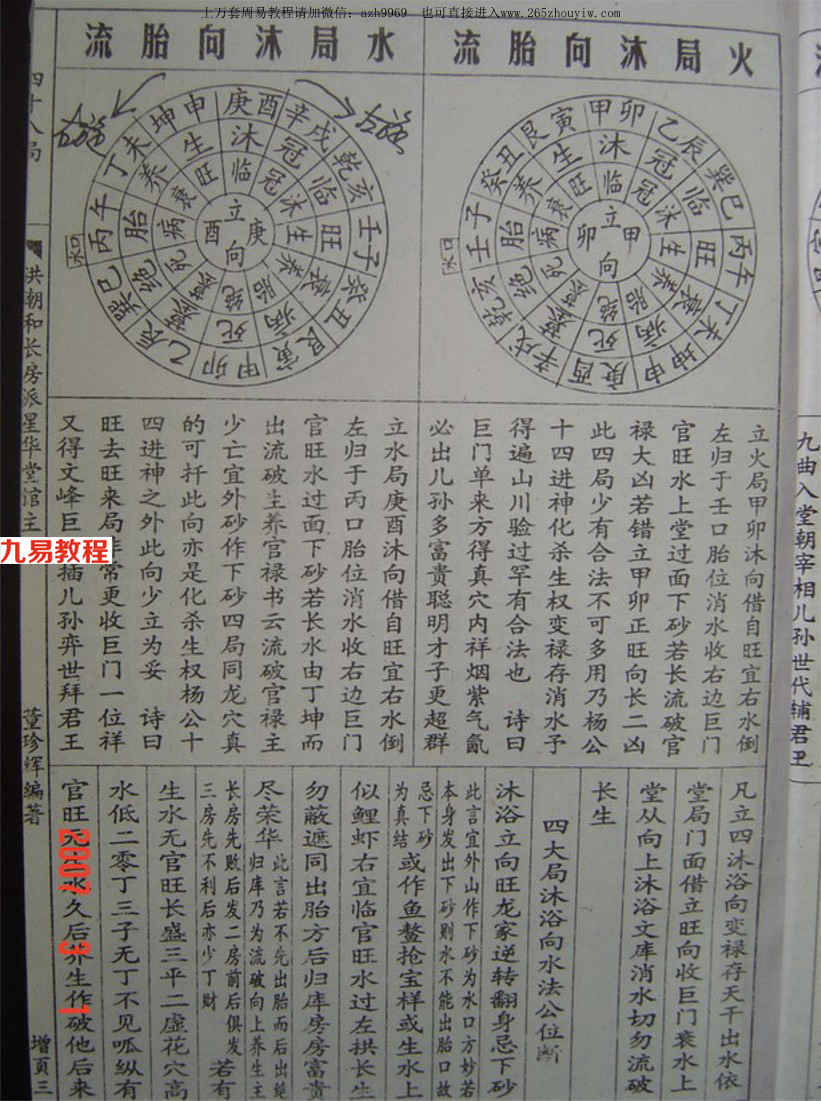 上万套周易教程请加微信：azh9969 也可直接进入www.265zhouyiw.com
火局沐向胎流
水局沐向胎流
立甲卯向
水口
立庚酉向
水口
立火局甲卯沐向借自旺宜右水倒
左归于壬口胎位消水收右边巨门
官旺水上堂过面下砂若长流破官
禄大凶若错立甲卯正旺向长二凶
此四局少有合法不可多用乃杨公
十四进神化杀生权变禄存消水予
得遍山川验过罕有合法也 诗曰
巨门单来方得真穴内祥烟紫气氤
必出儿孙多富贵聪明才子更超群
立水局庚酉沐向借自旺宜右水倒
左归于丙口胎位消水收右边巨门
官旺水过面下砂若长水由丁坤而
出流破生养官禄书云流破官禄主
少亡宜外砂作下砂四局同龙穴真
的可扦此向亦是化杀生权杨公十
四进神之外此向少立为妥 诗曰
旺去旺来局非常更收巨门一位祥
又得文峰巨插儿孙弈世拜君王
凡立四沐浴向变禄存天干出水依
堂局门面借立旺向收巨门衰水上
堂从向上沐浴文库消水切勿流破
长生
四大局沐浴向水法公位断
沐浴立向旺龙家逆转翻身忌下砂
此言宜外山作下砂为水口方妙若
本身发出下砂则水不能出胎口故
忌下砂
为真结
或作鱼鳌抢宝样或生水上
似鲤虾右宜临官旺水过左拱长生
勿蔽遮同出胎方后归库房房富贵
尽荣华
此言若不先出胎而后出绝
归库乃为流破向上养生主
长房先败后发二房前后俱发
三房先不利后亦少丁财
若有
生水无官旺长盛三平二虚花穴高
水低二零丁三子无丁不见呱纵有
官旺无生水久后养生作破他后来
四十八局
洪朝和长房派星华堂馆主
董珍辉编著
增页三
九曲入堂朝宰相儿孙世代辅君王
九易教程
2007 3 1